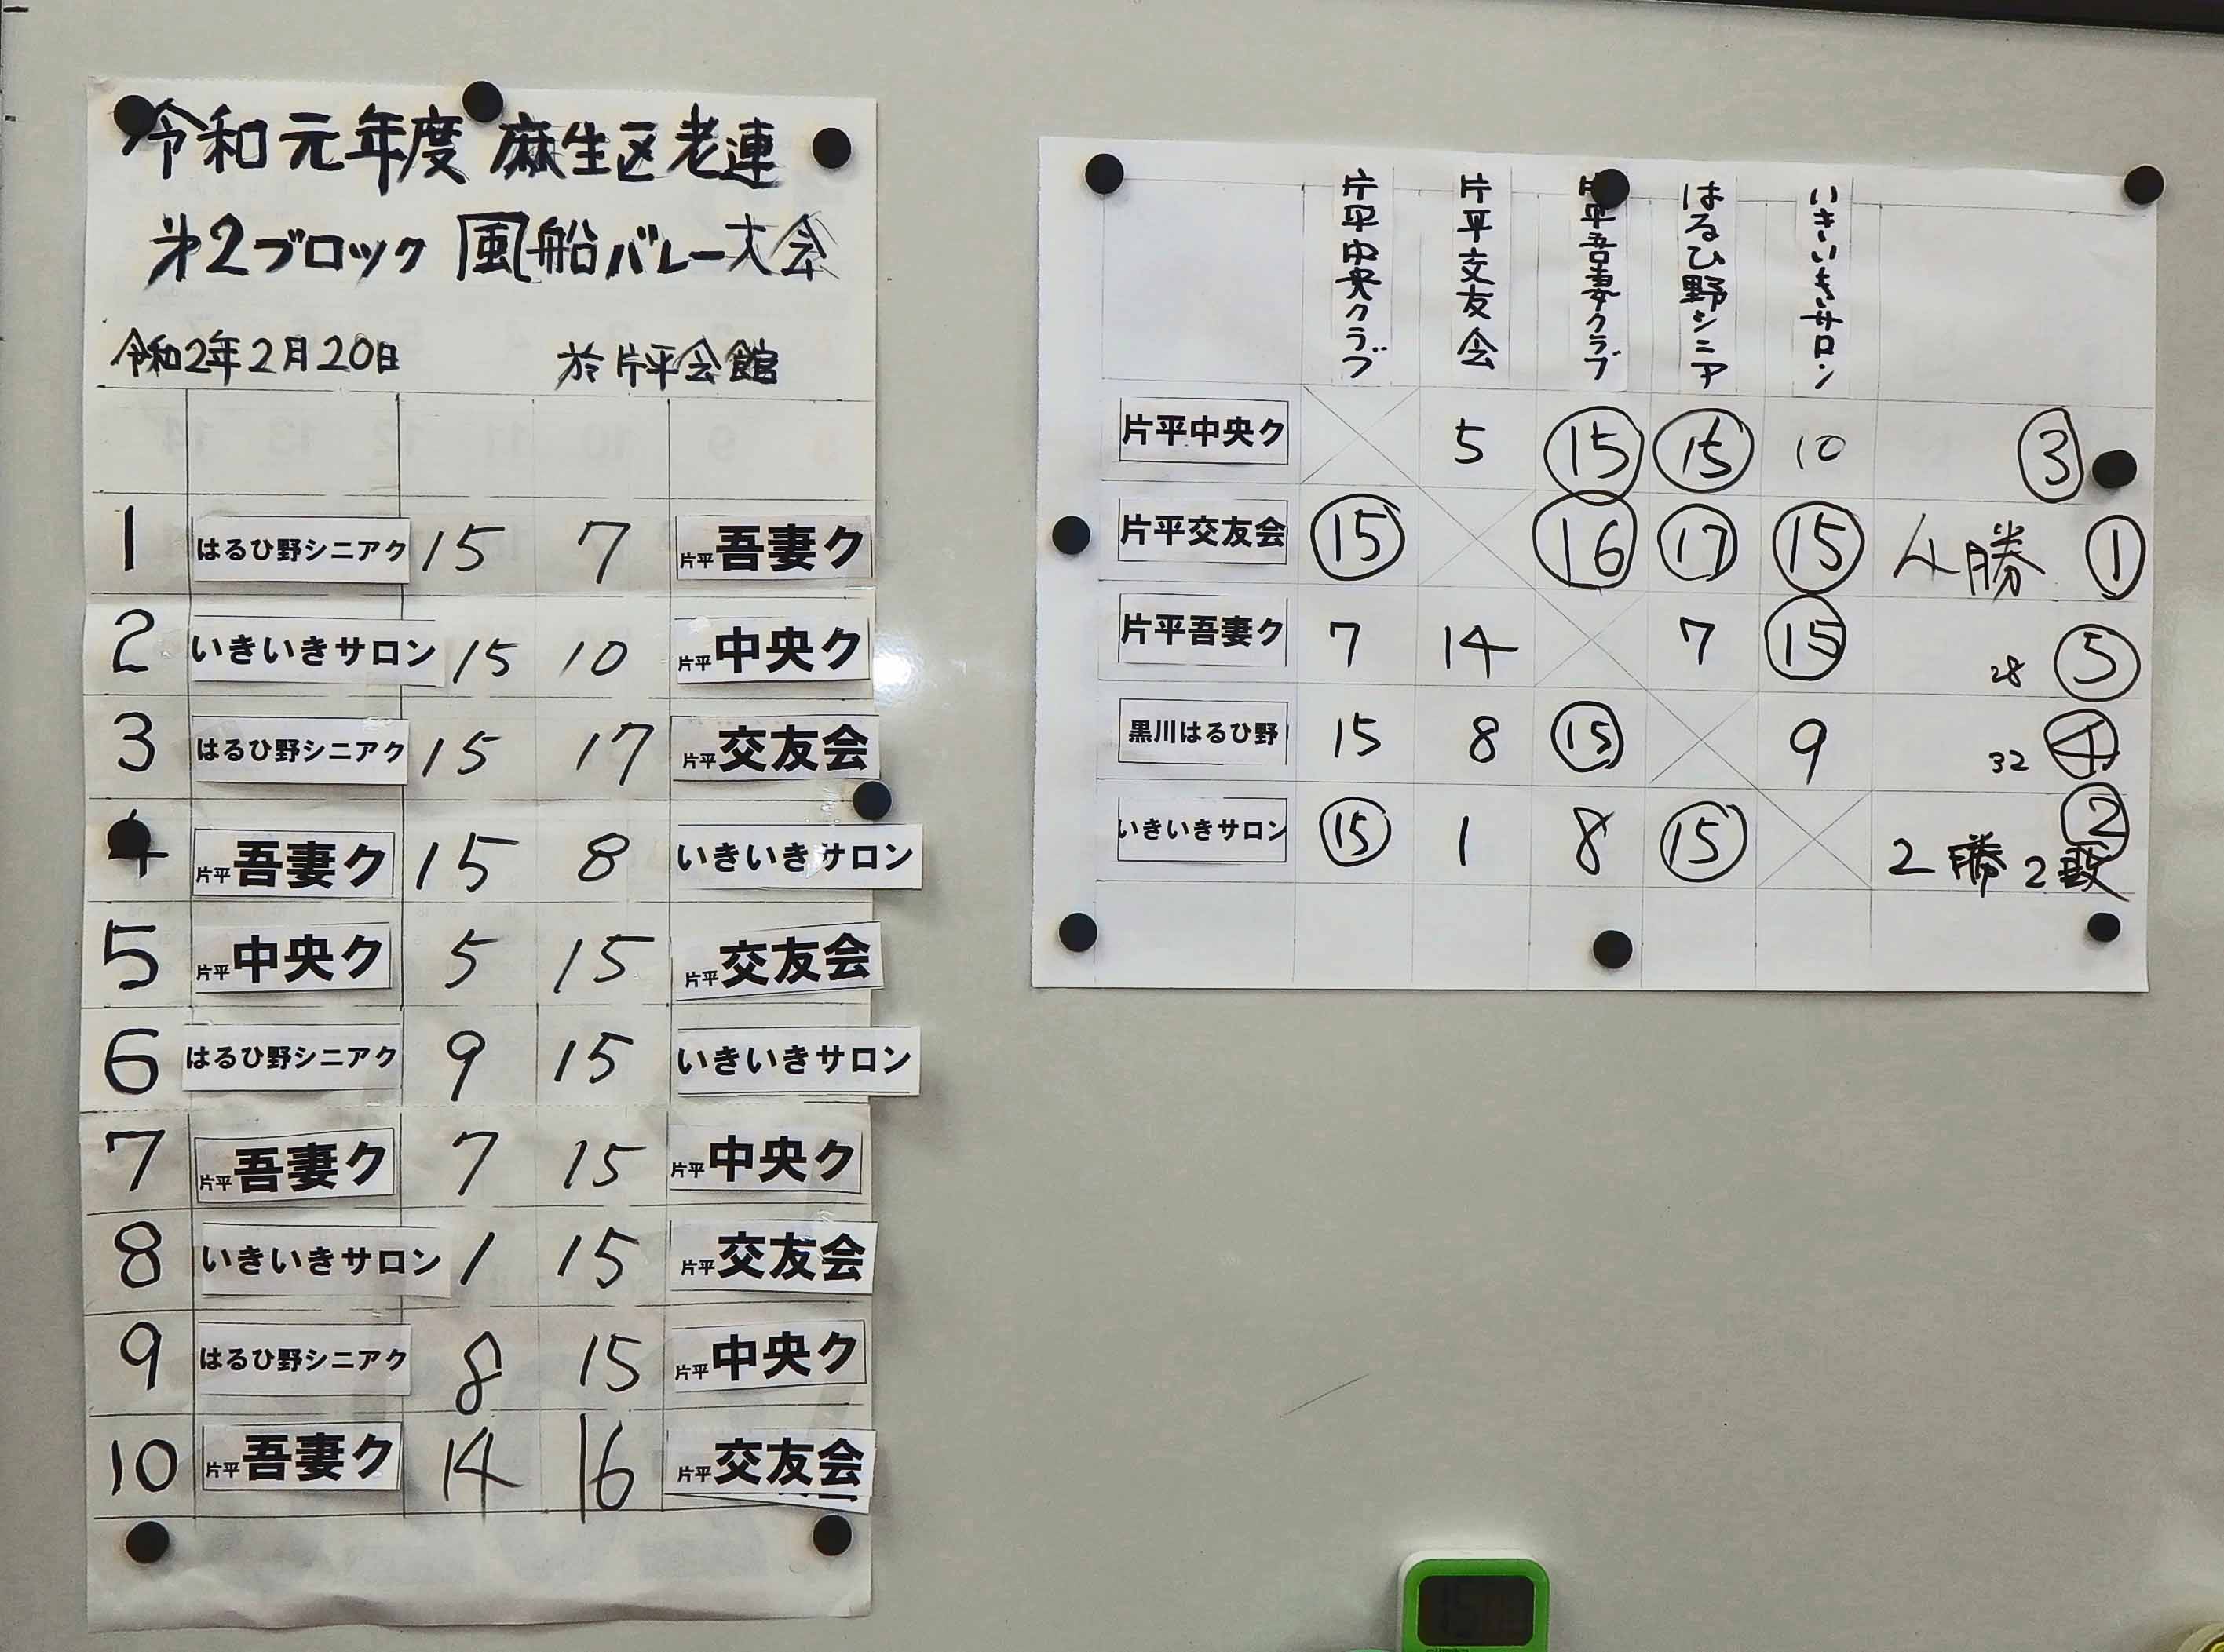 令和元年度 麻生区老連
第2ブロック 風船バレー大会
令和2年2月20日 於片平会館
1 はるひ野シニアク 15 7 片平吾妻ク
2 いきいきサロン 15 10 片平中央ク
3 はるひ野シニアク 15 17 片平交友会
4 片平吾妻ク 15 8 いきいきサロン
5 片平中央ク 5 15 片平交友会
6 はるひ野シニアク 9 15 いきいきサロン
7 片平吾妻ク 7 15 片平中央ク
8 いきいきサロン 1 15 片平交友会
9 はるひ野シニアク 8 15 片平中央ク
10 片平吾妻ク 14 16 片平交友会
片平中央クラブ
片平交友会
片平吾妻クラブ
はるひ野シニア
いきいきサロン
片平中央ク 5 ⑮ ⑮ 10 ③
片平交友会 ⑮ ⑯ ⑰ ⑮ 4勝 ①
片平吾妻ク 7 14 7 ⑮ 28 ⑤
黒川はるひ野 15 8 ⑮ 9 32 ④
いきいきサロン ⑮ 1 8 ⑮ 2勝2敗 ②